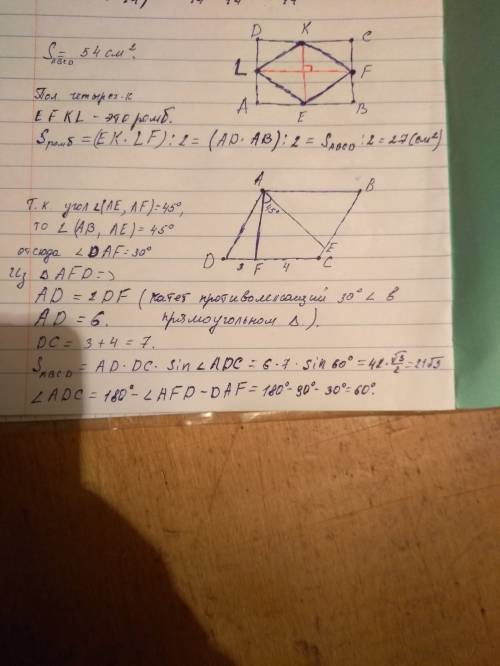 S ABCD = 54 см².
D K C
L F
A E B
Пол четырех-к
EFKL - это ромб.
Sромб = (EK · LF) : 2 = (AD · AB) : 2 = S ABCD : 2 = 27 (см²)
A B
45°
D 3 F 4 C E
Т.к. угол ∠(AE, AF) = 45°,
то ∠(AB, AE) = 45°
отсюда ∠DAF = 30°
Из △AFD =>
AD = 2DF (катет противолежащий 30° ∠ в
AD = 6. прямоугольном △).
DC = 3 + 4 = 7.
S ABCD = AD · DC · sin∠ADC = 6 · 7 · sin 60° = 42 · √3/2 = 21√3
∠ADC = 180° - ∠AFD - DAF = 180° - 90° - 30° = 60°.